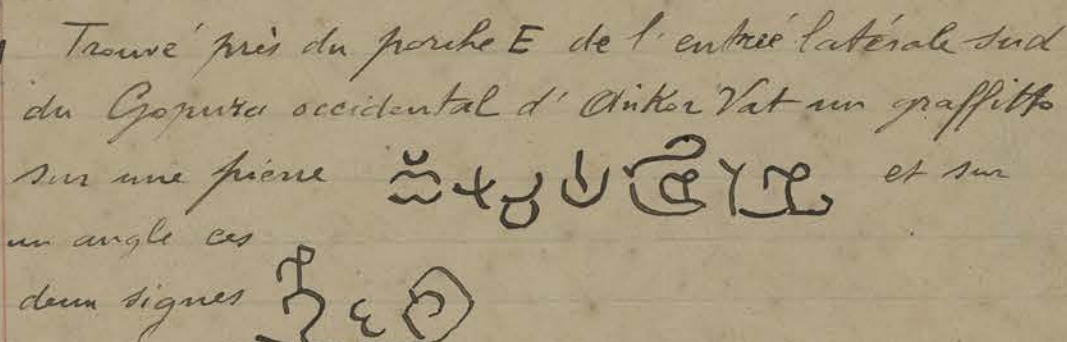 Trouvé près du porche E de l'entrée latérale sud
du Gopura occidental d'Ankor Vat un graffitto
sur une pierre et sur
un angle ces
deux signes